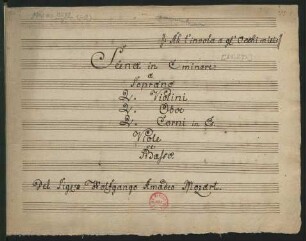 Ah t'invola a gl'occhi miei
Scena in C minore
a
Soprano
2. Violini
2. Oboe
2. Corni in
Viole
et
Basso
Del Sigre Wolfgango Amadeo Mozart